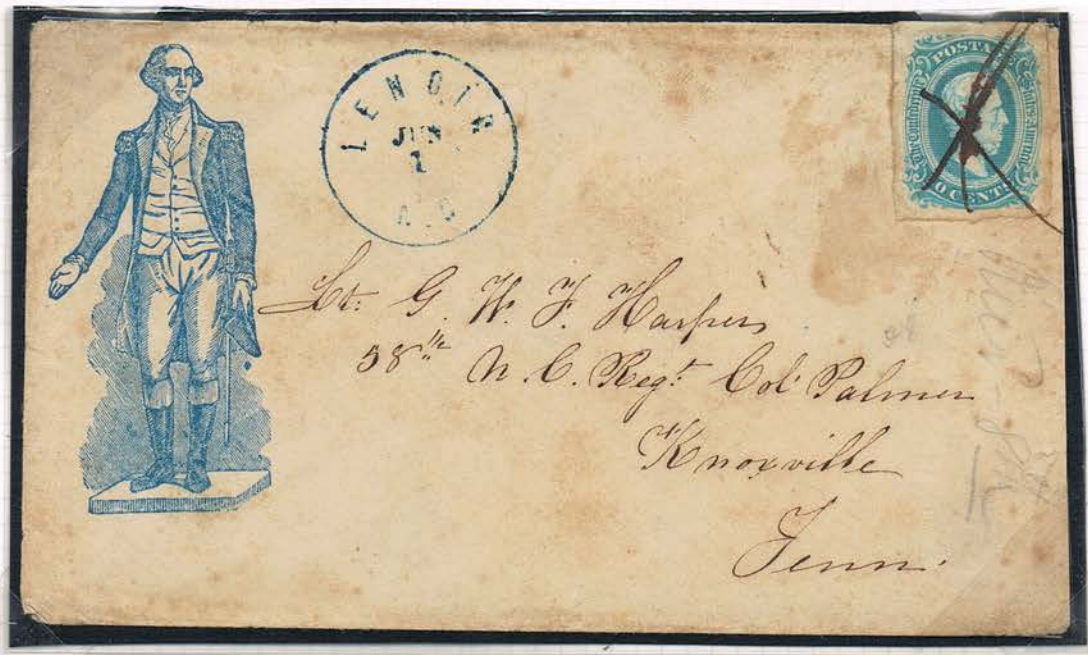 LENOIR
JUN
1
N.C
POSTAGE
The Confederate States of America
10 CENTS
Lt. G. W. F. Harper
58th N. C. Regt. Col. Palmer
Knoxville
Tenn.